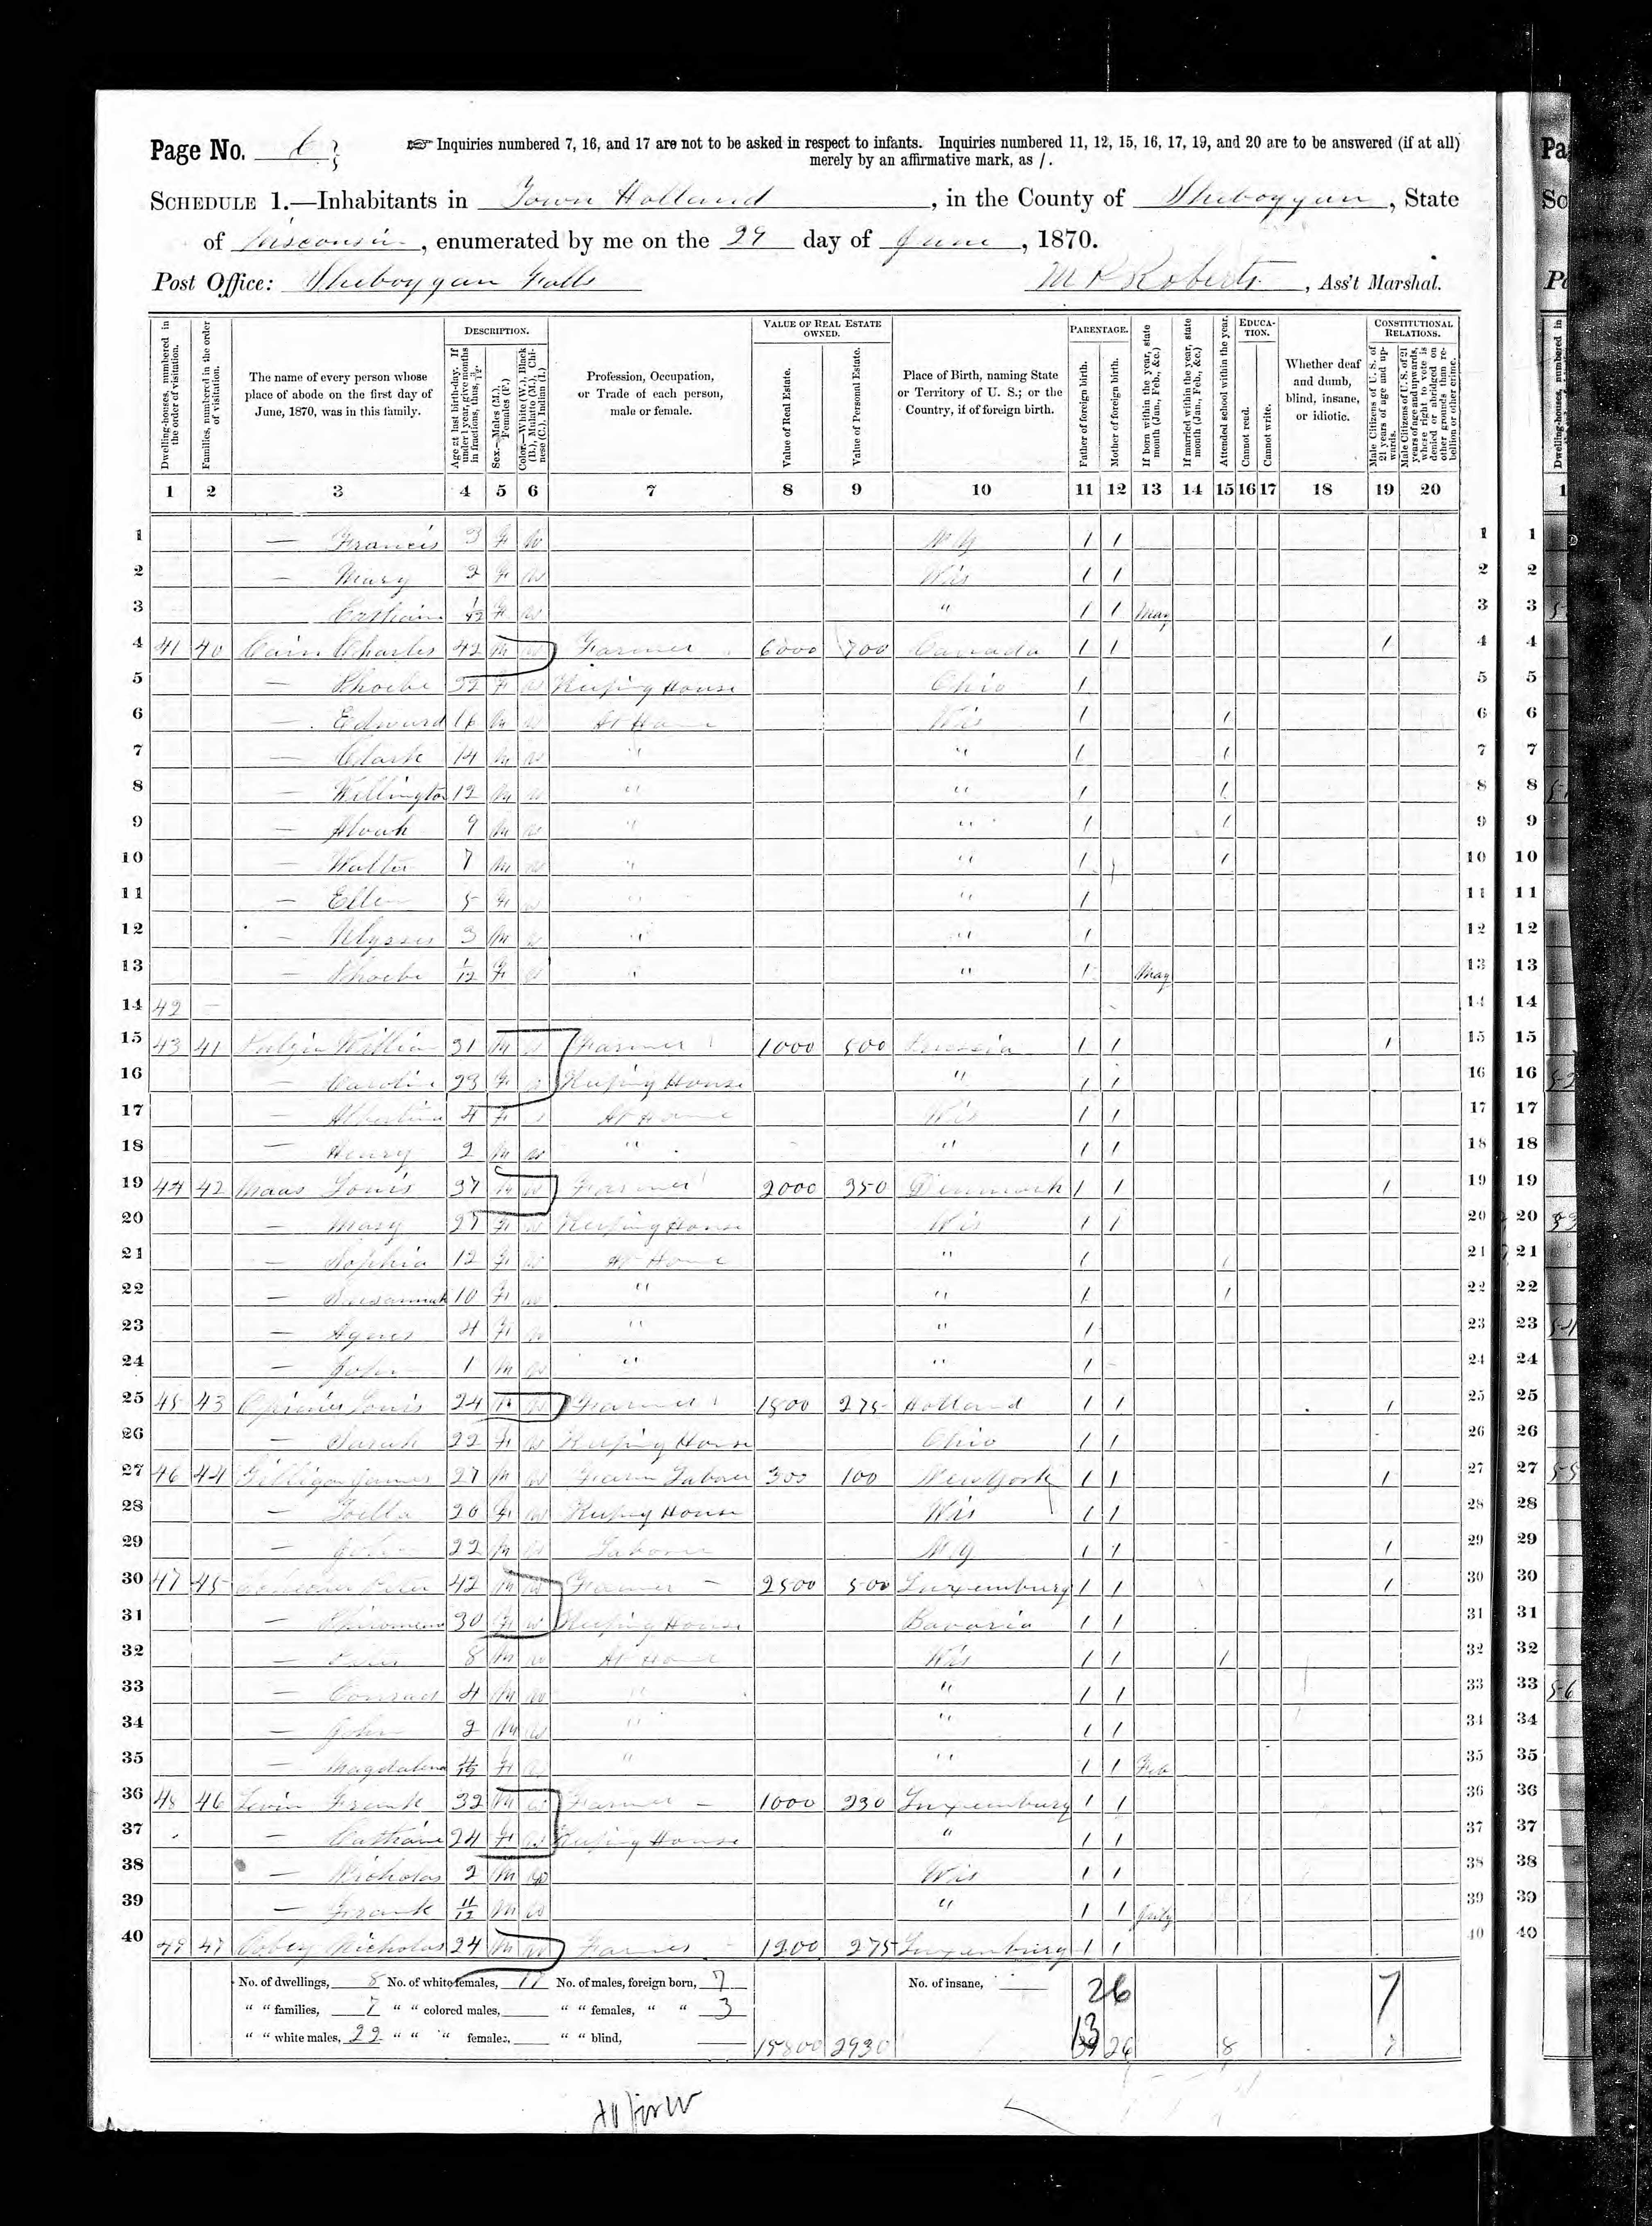 Page No. 6
☞ Inquiries numbered 7, 16, and 17 are not to be asked in respect to infants. Inquiries numbered 11, 12, 15, 16, 17, 19, and 20 are to be answered (if at all)
merely by an affirmative mark, as /.
SCHEDULE 1.—Inhabitants in Town Holland, in the County of Sheboygan, State
of Wisconsin, enumerated by me on the 29 day of June, 1870.
Post Office: Sheboygan Falls
M P Roberts, Ass't Marshal.
Dwelling-houses, numbered in the order of visitation.
Families, numbered in the order of visitation.
The name of every person whose place of abode on the first day of June, 1870, was in this family.
DESCRIPTION.
Age at last birth-day. If under 1 year, give months in fractions, thus, 3/12.
Sex.—Males (M.), Females (F.)
Color.—White (W.), Black (B.), Mulatto (M.), Chinese (C.), Indian (I.)
Profession, Occupation, or Trade of each person, male or female.
VALUE OF REAL ESTATE OWNED.
Value of Real Estate.
Value of Personal Estate.
Place of Birth, naming State or Territory of U. S.; or the Country, if of foreign birth.
PARENTAGE.
Father of foreign birth.
Mother of foreign birth.
If born within the year, state month (Jan., Feb., &c.)
If married within the year, state month (Jan., Feb., &c.)
Attended school within the year.
EDUCATION.
Cannot read.
Cannot write.
Whether deaf and dumb, blind, insane, or idiotic.
CONSTITUTIONAL RELATIONS.
Male Citizens of U. S. of 21 years of age and upwards.
Male Citizens of U. S. of 21 years of age and upwards, where right to vote is denied or abridged on other grounds than rebellion or other crime.
1 2 3 4 5 6 7 8 9 10 11 12 13 14 15 16 17 18 19 20
1 — Francis 3 F W N Y / / 1
2 — Mary 2 F W Wis / / 2
3 — 1/12 F W " / / May 3
4 41 40 Cain Charles 42 M W Farmer 6000 700 Canada / / / 4
5 — Phoebe 32 F W Keeping House Ohio / 5
6 — Edward 16 M W At Home Wis / / 6
7 — Clark 14 M W " " / / 7
8 — Wellington 12 M W " " / / 8
9 — Alvah 9 M W " " / / 9
10 — Walter 7 M W " " / / 10
11 — Ellen 5 F W " " / 11
12 — Ulysses 3 M W " " / 12
13 — Phoebe 1/12 F W " " / May 13
14 42 — 14
15 43 41 William 31 M W Farmer 1000 500 Prussia / / / 15
16 — Caroline 23 F W Keeping House " / / 16
17 — Albertina 4 F At Home Wis / / 17
18 — Henry 2 M W " " / / 18
19 44 42 Maas Louis 37 M W Farmer 2000 350 Denmark / / / 19
20 — Mary 27 F W Keeping House Wis / / 20
21 — Sophia 12 F W At Home " / / 21
22 — Susannah 10 F W " " / / 22
23 — Agnes 4 F W " " / 23
24 — John 1 M W " " / 24
25 45 43 Louis 24 M W Farmer 1800 275 Holland / / / 25
26 — Sarah 22 F W Keeping House Ohio / / 26
27 46 44 Gilligan James 27 M W Farm Laborer 300 100 New York / / / 27
28 — 20 F W Keeping House Wis / / 28
29 — John 22 M W Laborer N Y / / / 29
30 47 45 Peter 42 M W Farmer 2500 500 Luxemburg / / / 30
31 — 30 F W Keeping House Bavaria / / 31
32 — 8 M W At Home Wis / / / 32
33 — Conrad 4 M W " " / / 33
34 — John 2 M W " " / / 34
35 — Magdalena 4/12 F W " " / / Feb 35
36 48 46 Frank 32 M W Farmer 1000 230 Luxemburg / / 36
37 — 24 F W Keeping House " / / 37
38 — Nicholas 2 M W Wis / / 38
39 — Frank 11/12 M W " / / July 39
40 49 47 Nicholas 24 M W Farmer 1200 275 Luxemburg / / 40
No. of dwellings, 8 No. of white females, 17 No. of males, foreign born, 7 No. of insane,
" " families, 7 " " colored males, " " females, " " 3
" " white males, 22 " " " females, " " blind,
15800 2930
26 7
13 26 8 7